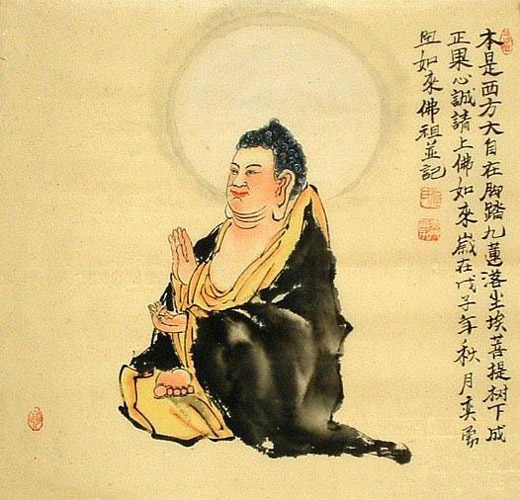 本是西方大自在脚踏九蓮落坐埃菩提树下成
正果心誠請上佛如來嵗在戊子年秋月奕
如來佛祖並記